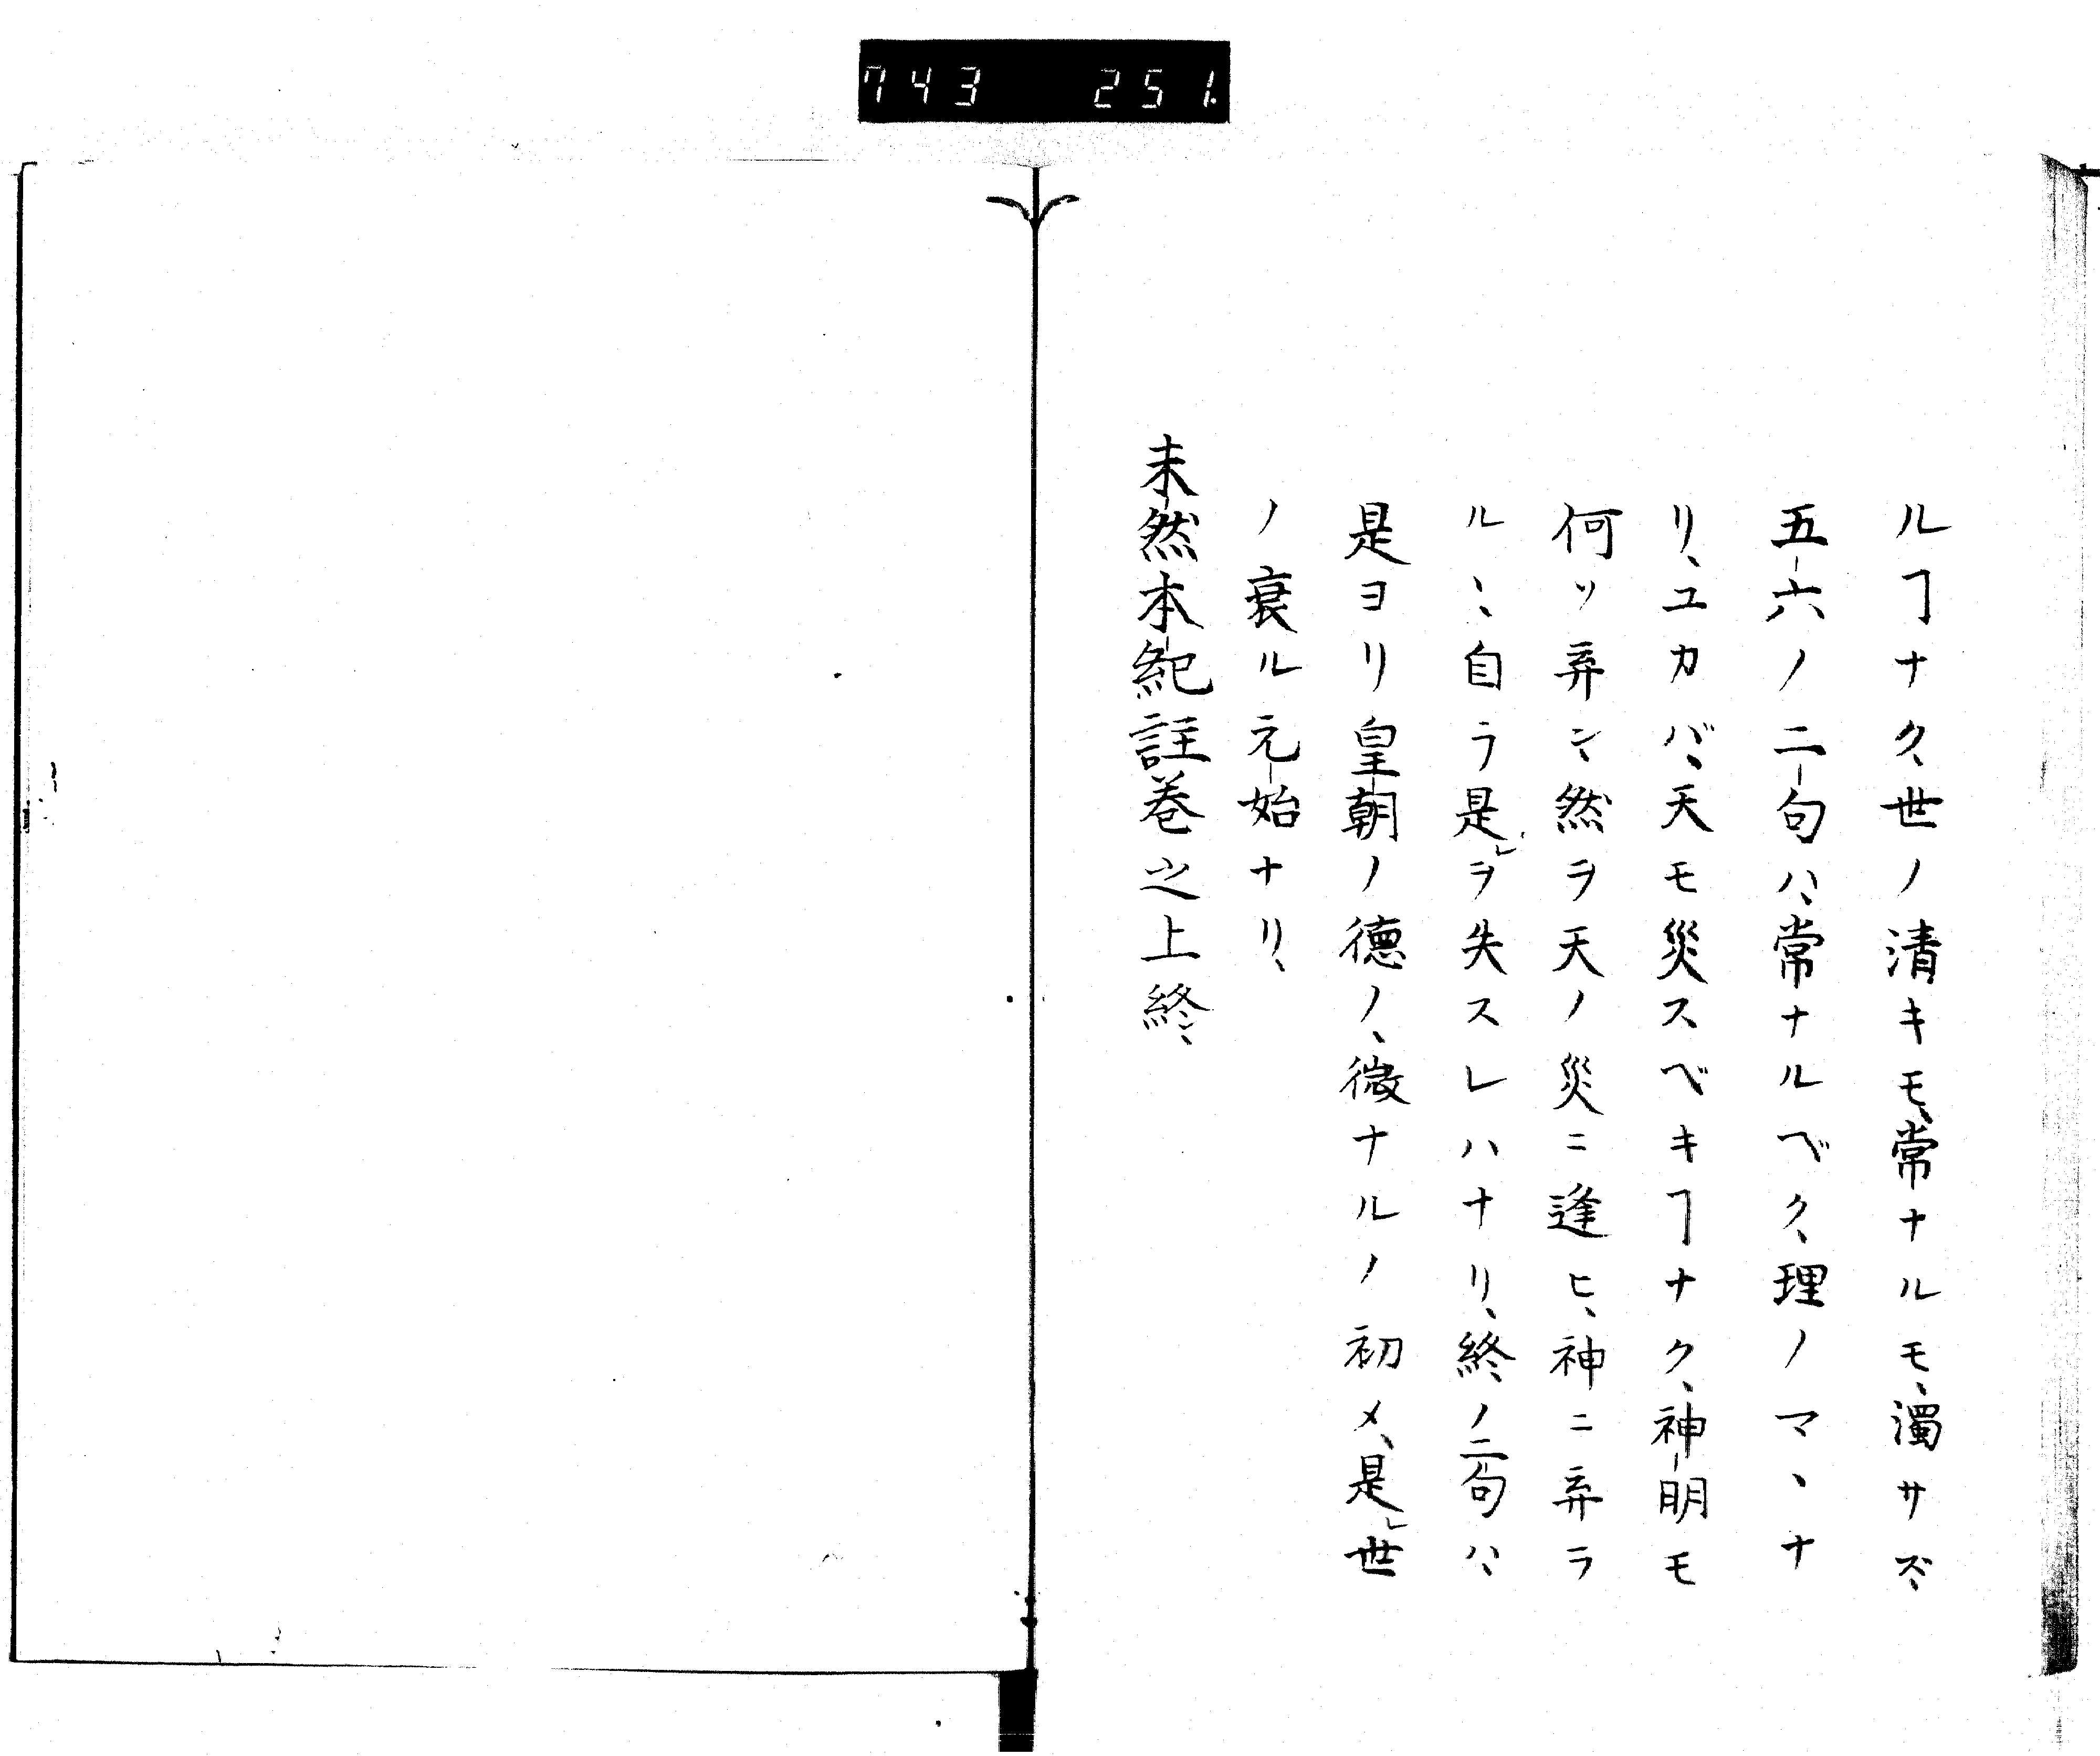 743 251.
ルヿナク、世ノ清キモ、常ナルモ、濁サズ、
五-六ノ二-句ハ、常ナルベク、理ノマヽナ
リ、ユカバ、天モ災スベキヿナク、神-明モ
何ソ弃ン、然ヲ天ノ災ニ逢ヒ、神ニ弃ラ
ルヽ、自ラ是レヲ失スレハナリ、終ノ二句ハ、
是ヨリ皇-朝ノ德ノ、微ナルノ初メ、是レ世
ノ衰ル元-始ナリ、
未-然本-紀註巻之上終、